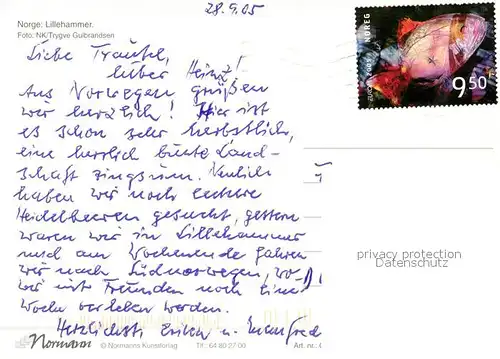 28.9.05
Norge: Lillehammer.
Foto: NK/Trygve Gulbrandsen
NOREG
9.50
Liebe Traudel,
lieber Heinz!
Aus Norwegen grüßen
wir herzlich! Hier ist
es schon sehr herbstlich,
eine herrlich bunte Land-
schaft ringsum. Neulich
haben wir noch leckere
Heidelbeeren gesucht, gestern
waren wir in Lillehammer
und am Wochenende fahren
wir nach Südnorwegen, wo
wir mit Freunden noch eine
Woche verleben werden.
Herzlichst Erika u. Manfred
privacy protection
Datenschutz
Normann
© Normanns Kunstforlag Tlf.: 64 80 27 00 Art. nr.: